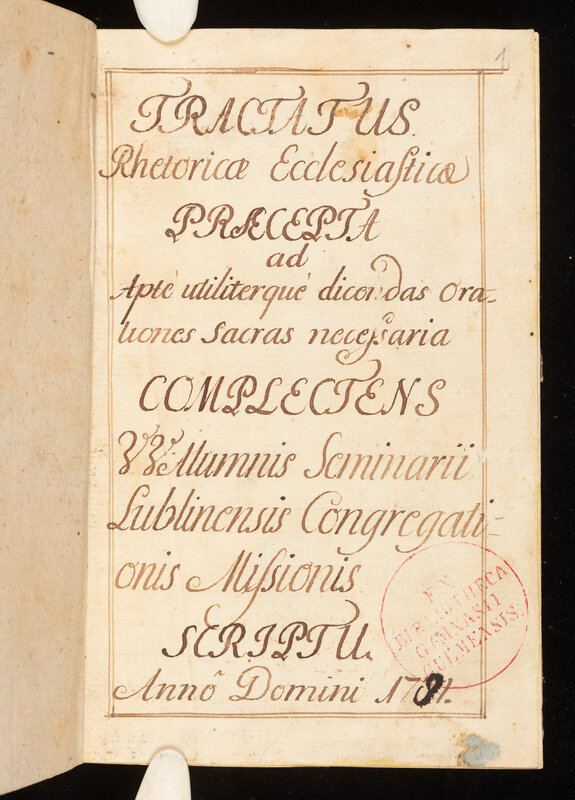 1
TRACTATUS.
Rhetoricæ Ecclesiaſticæ
PRÆCEPTA
ad
Aptè utiliterquè dicendas Ora-
tiones Sacras neceſsaria
COMPLECTENS
VV. Alumnis Seminarii
Lublinensis Congregati-
onis Miſsionis
SCRIPTU.
Annô Domini
EX
BIBLIOTHECA
GYMNASII
CULMENSIS.